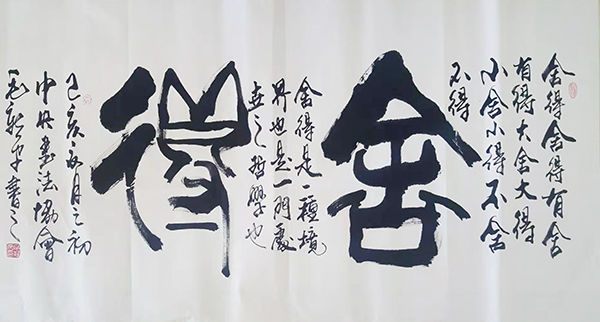 舍得舍得有舍
有得大舍大得
小舍小得不舍
不得
舍
舍得是一種境
界也是一門處
世之哲學也
得
己亥月之初
中央書法協會
書之